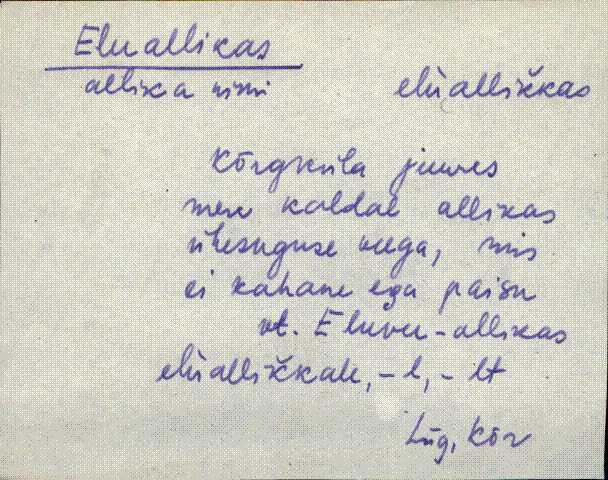 Eluallikas
allika nimi elu̇allik̆kas
Kõrgküla juures
mere kaldal allikas
ühesuguse veega, mis
ei kahane ega paisu
vt. Eluvee-allikas
elu̇allik̆kale, -l, -lt
Lüg, Kõr